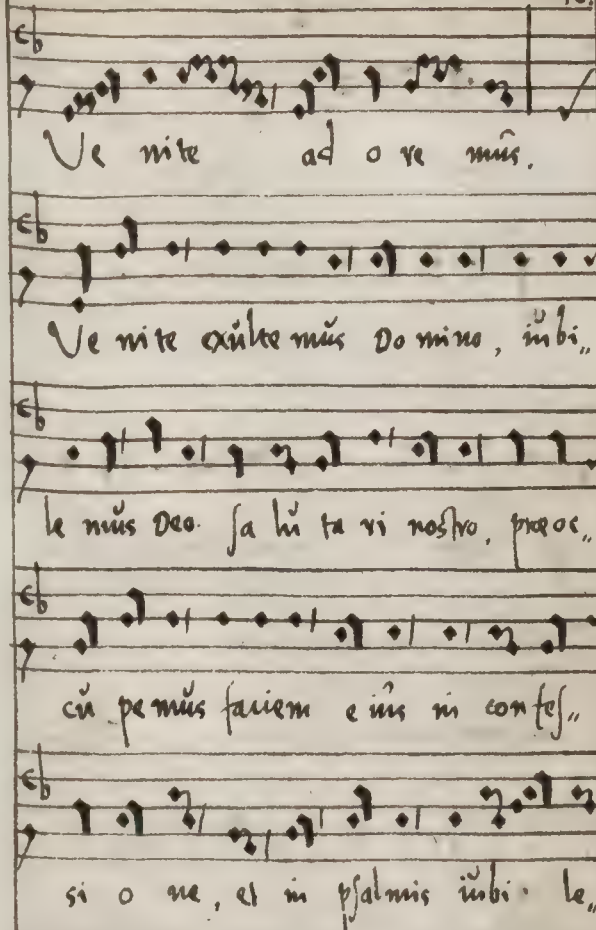 Ve nite ad o re mus.
Ve nite exulte mus Do mino, iubi„
le mus Deo. sa lu ta ri nostro, præoc„
cu pe mus faciem e ius in confes„
si o ne, et in psalmis iubi le„